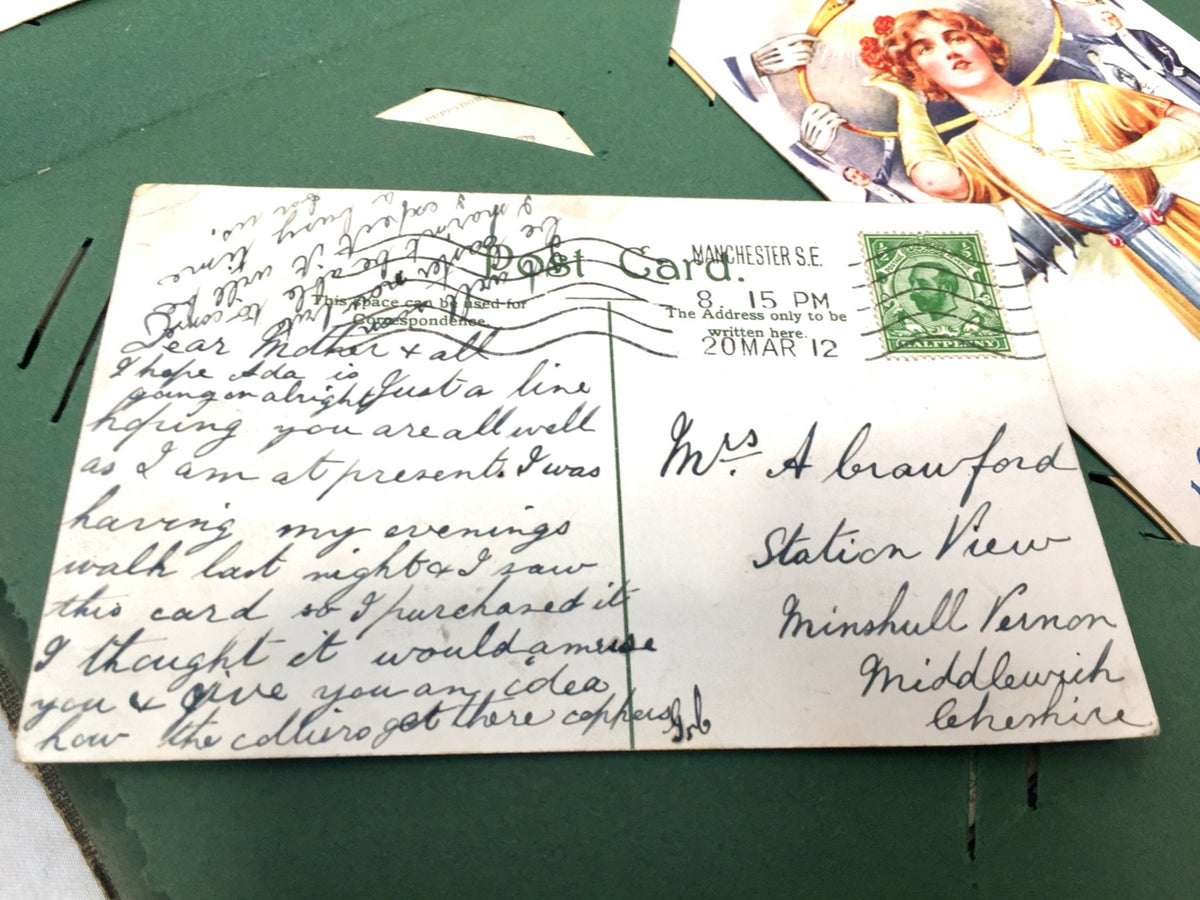 Post Card.
This space can be used for
Correspondence.
The Address only to be
written here.
MANCHESTER S.E.
8. 15 PM
20 MAR 12
HALFPENNY
Dear Mother & all
I hope Ada is
going on alright
Just a line
hoping you are all well
as I am at present. I was
having my evenings
walk last night & I saw
this card so I purchased it
I thought it would amuse
you & give you an idea
how the colliers get there coppers
Mrs. A Crawford
Station View
Minshull Vernon
Middlewich
Cheshire
to come
it will be
time
I expect
a busy
for us.